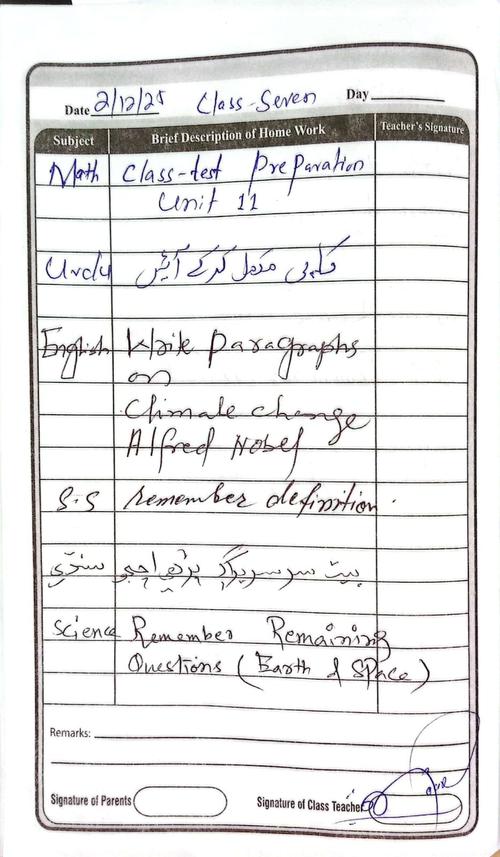 Date 2/12/25 Class-Seven Day
Subject Brief Description of Home Work Teacher's Signature
Math Class-test Preparation
Unit 11
Urdu کاپی مکمل کرکے آئیں
English Write Paragraphs
on
Climate change
Alfred Nobel
S.S remember definition.
سنڌي بيت سر سريراڳ پڙهي اچو
Science Remember Remaining
Questions (Earth & Space)
Remarks:
Signature of Parents Signature of Class Teacher